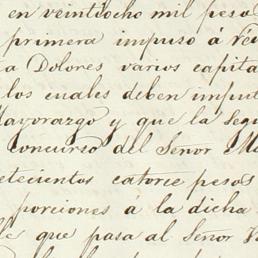 en veintiocho mil peso
primera impuso á
a Dolores varios capita
los cuales deben imput
Mayorazgo y que la seg
Concurso del Señor M
etecientos catorce pesos
porciones á la dicha
que pasa al Señor